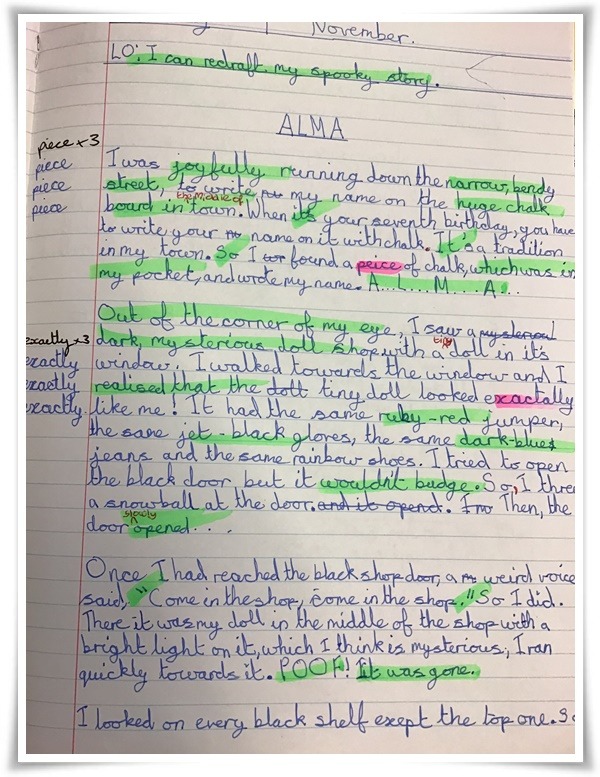 November.
LO: I can redraft my spooky story.
ALMA
piece x3
piece
piece
piece
I was joyfully running down the narrow, bendy
street, to write my name on the huge chalk
the middle of
board in town. When it's your seventh birthday, you have
to write your name on it with chalk. It's a tradition
in my town. So I found a peice of chalk, which was in
my pocket, and wrote my name. A...L...M...A...
Out of the corner of my eye, I saw a mysterious
exactly x3
exactly
exactly
exactly.
dark, mysterious doll shop with a tiny doll in it's
window. I walked towards the window and I
realised that the doll tiny doll looked exactally
like me! It had the same ruby-red jumper,
the same jet-black gloves, the same dark-blue
jeans and the same rainbow shoes. I tried to open
the black door but it wouldn't budge. So, I threw
a snowball at the door. and it opend. Then, the
door slowly opened....
Once I had reached the black shop door, a weird voice
said, "Come in the shop, come in the shop." So I did.
There it was my doll in the middle of the shop with a
bright light on it, which I think is mysterious, I ran
quickly towards it. POOF! It was gone.
I looked on every black shelf exept the top one. So